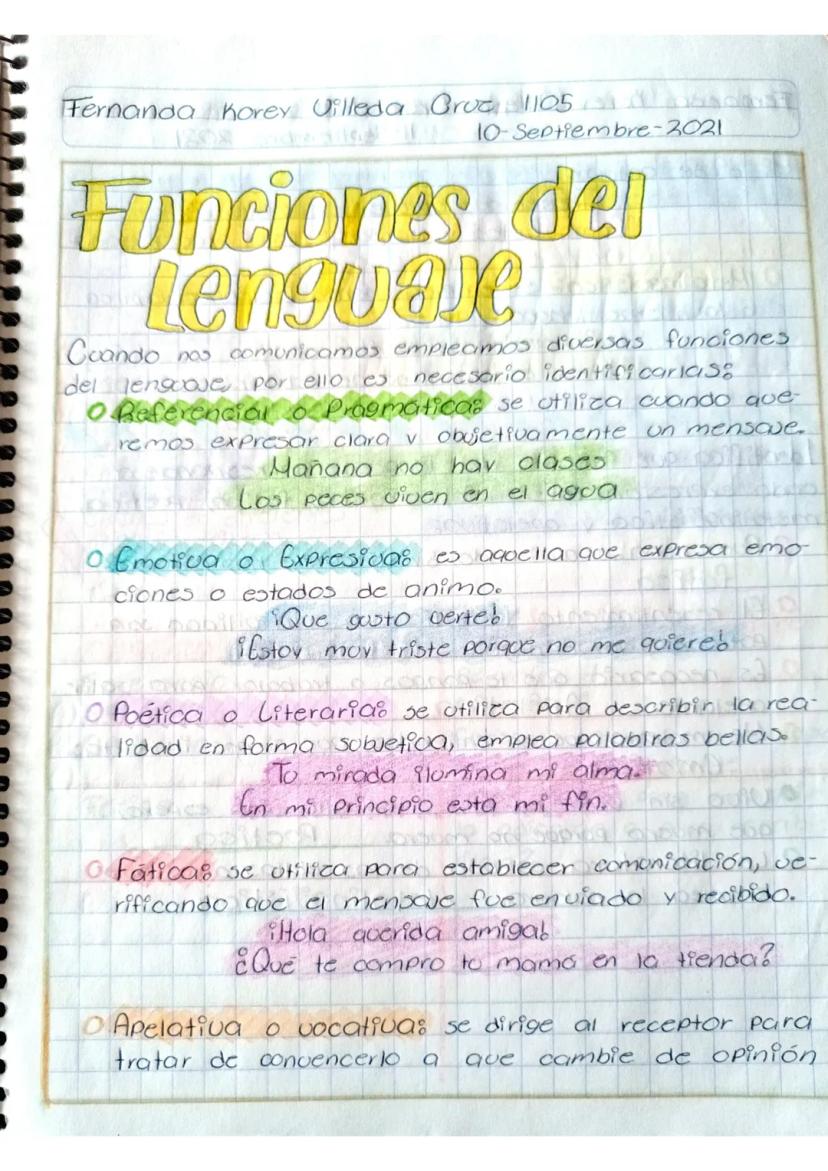 Fernanda Korey Villeda Cruz 1105
10-Septiembre-2021
Funciones del
Lenguaje
Cuando nos comunicamos empleamos diversas funciones
del lenguaje por ello es necesario identificarlas:
Referencial o Pragmática: se utiliza cuando que-
remos expresar clara y objetivamente un mensaje.
Mañana no hay clases
Los peces viven en el agua
Emotiva o Expresiva: es aquella que expresa emo-
ciones o estados de animo.
¡Que gusto verte!
¡Estoy muy triste porque no me quiere!
Poética o Literaria: se utiliza para describir la rea-
lidad en forma subjetica, emplea palabiras bellas.
Tu mirada ilumina mi alma.
En mi principio esta mi fin.
Fática: se utiliza para establecer comunicación, ve-
rificando que el mensaje fue enviado y recibido.
¡Hola querida amiga!
¿Qué te compro tu mamá en la tienda?
Apelativa o vocativa: se dirige al receptor para
tratar de convencerlo a que cambie de opinión